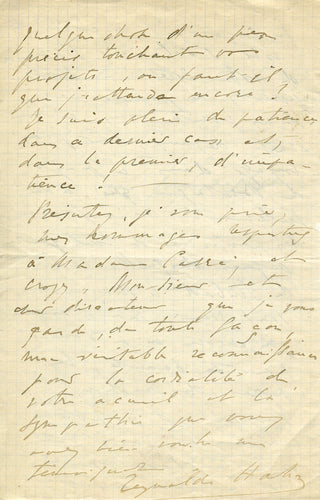 quelque chose d'un peu
précis touchant vos
projets, ou faut-il
que j'attende encore?
Je suis plein de patience,
dans ce dernier cas et,
dans le premier, d'impa-
tience!
Présentez, je vous prie,
mes hommages respectueux
à Madame Carré, et
croyez, Monsieur et
cher directeur que je vous
garde, de toute façon,
une véritable reconnaissance
pour la cordialité de
votre accueil et la
sympathie que vous
avez bien voulu me
témoigner
Reynaldo Hahn